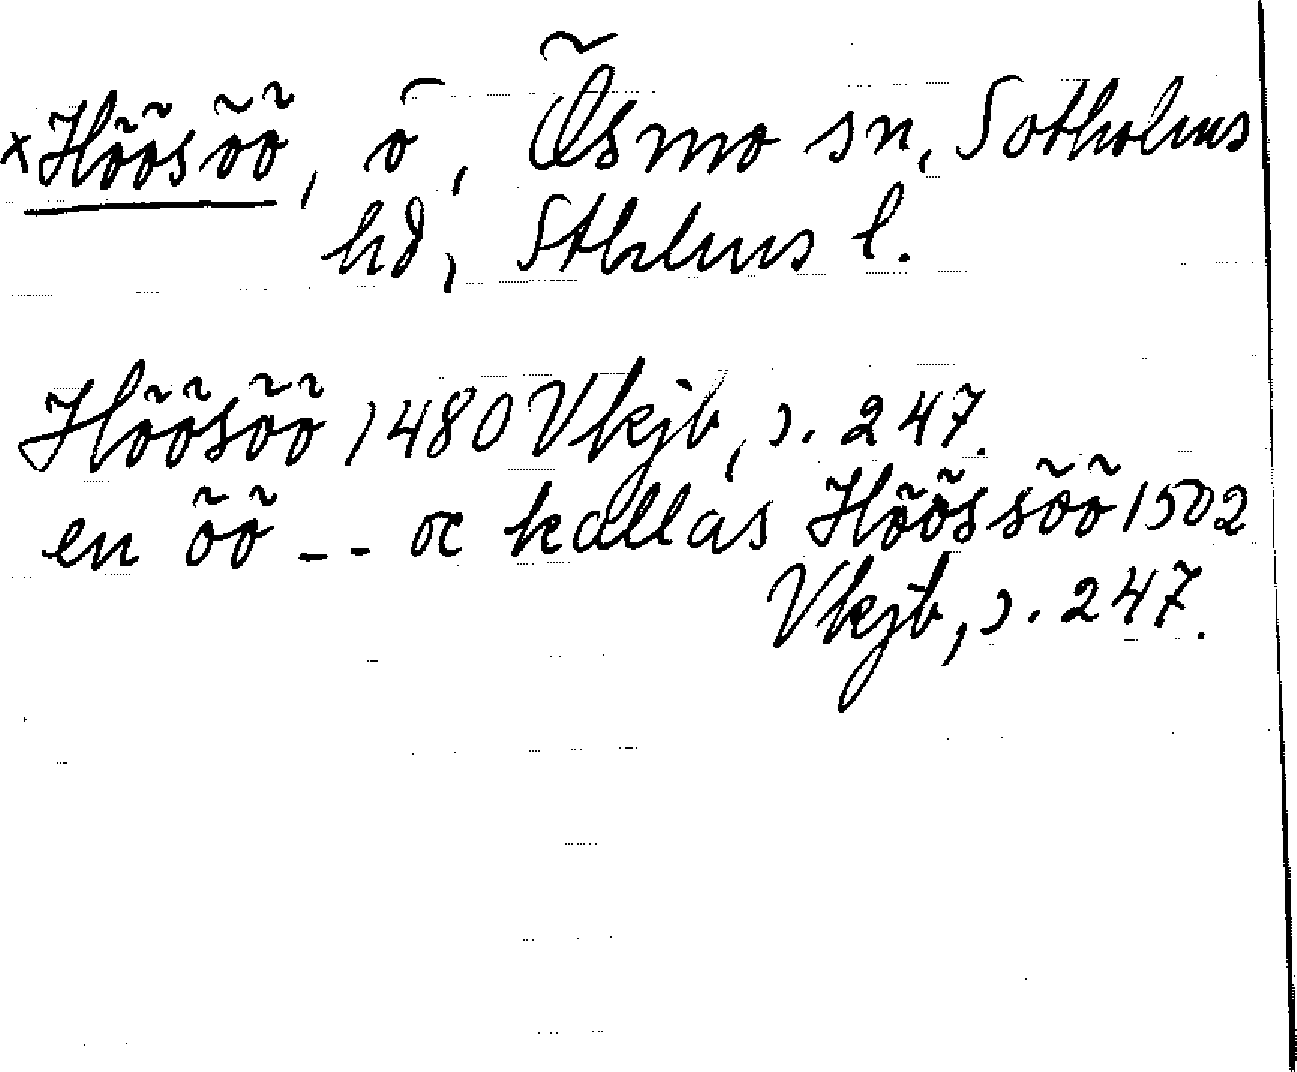 ×Höösöö, ö, Ösmo sn, Sotholms
hd, Sthlms l.
Höösöö 1480 Vkjb, s. 247.
en öö -- oc kallas Höössöö 1502
Vkjb, s. 247.